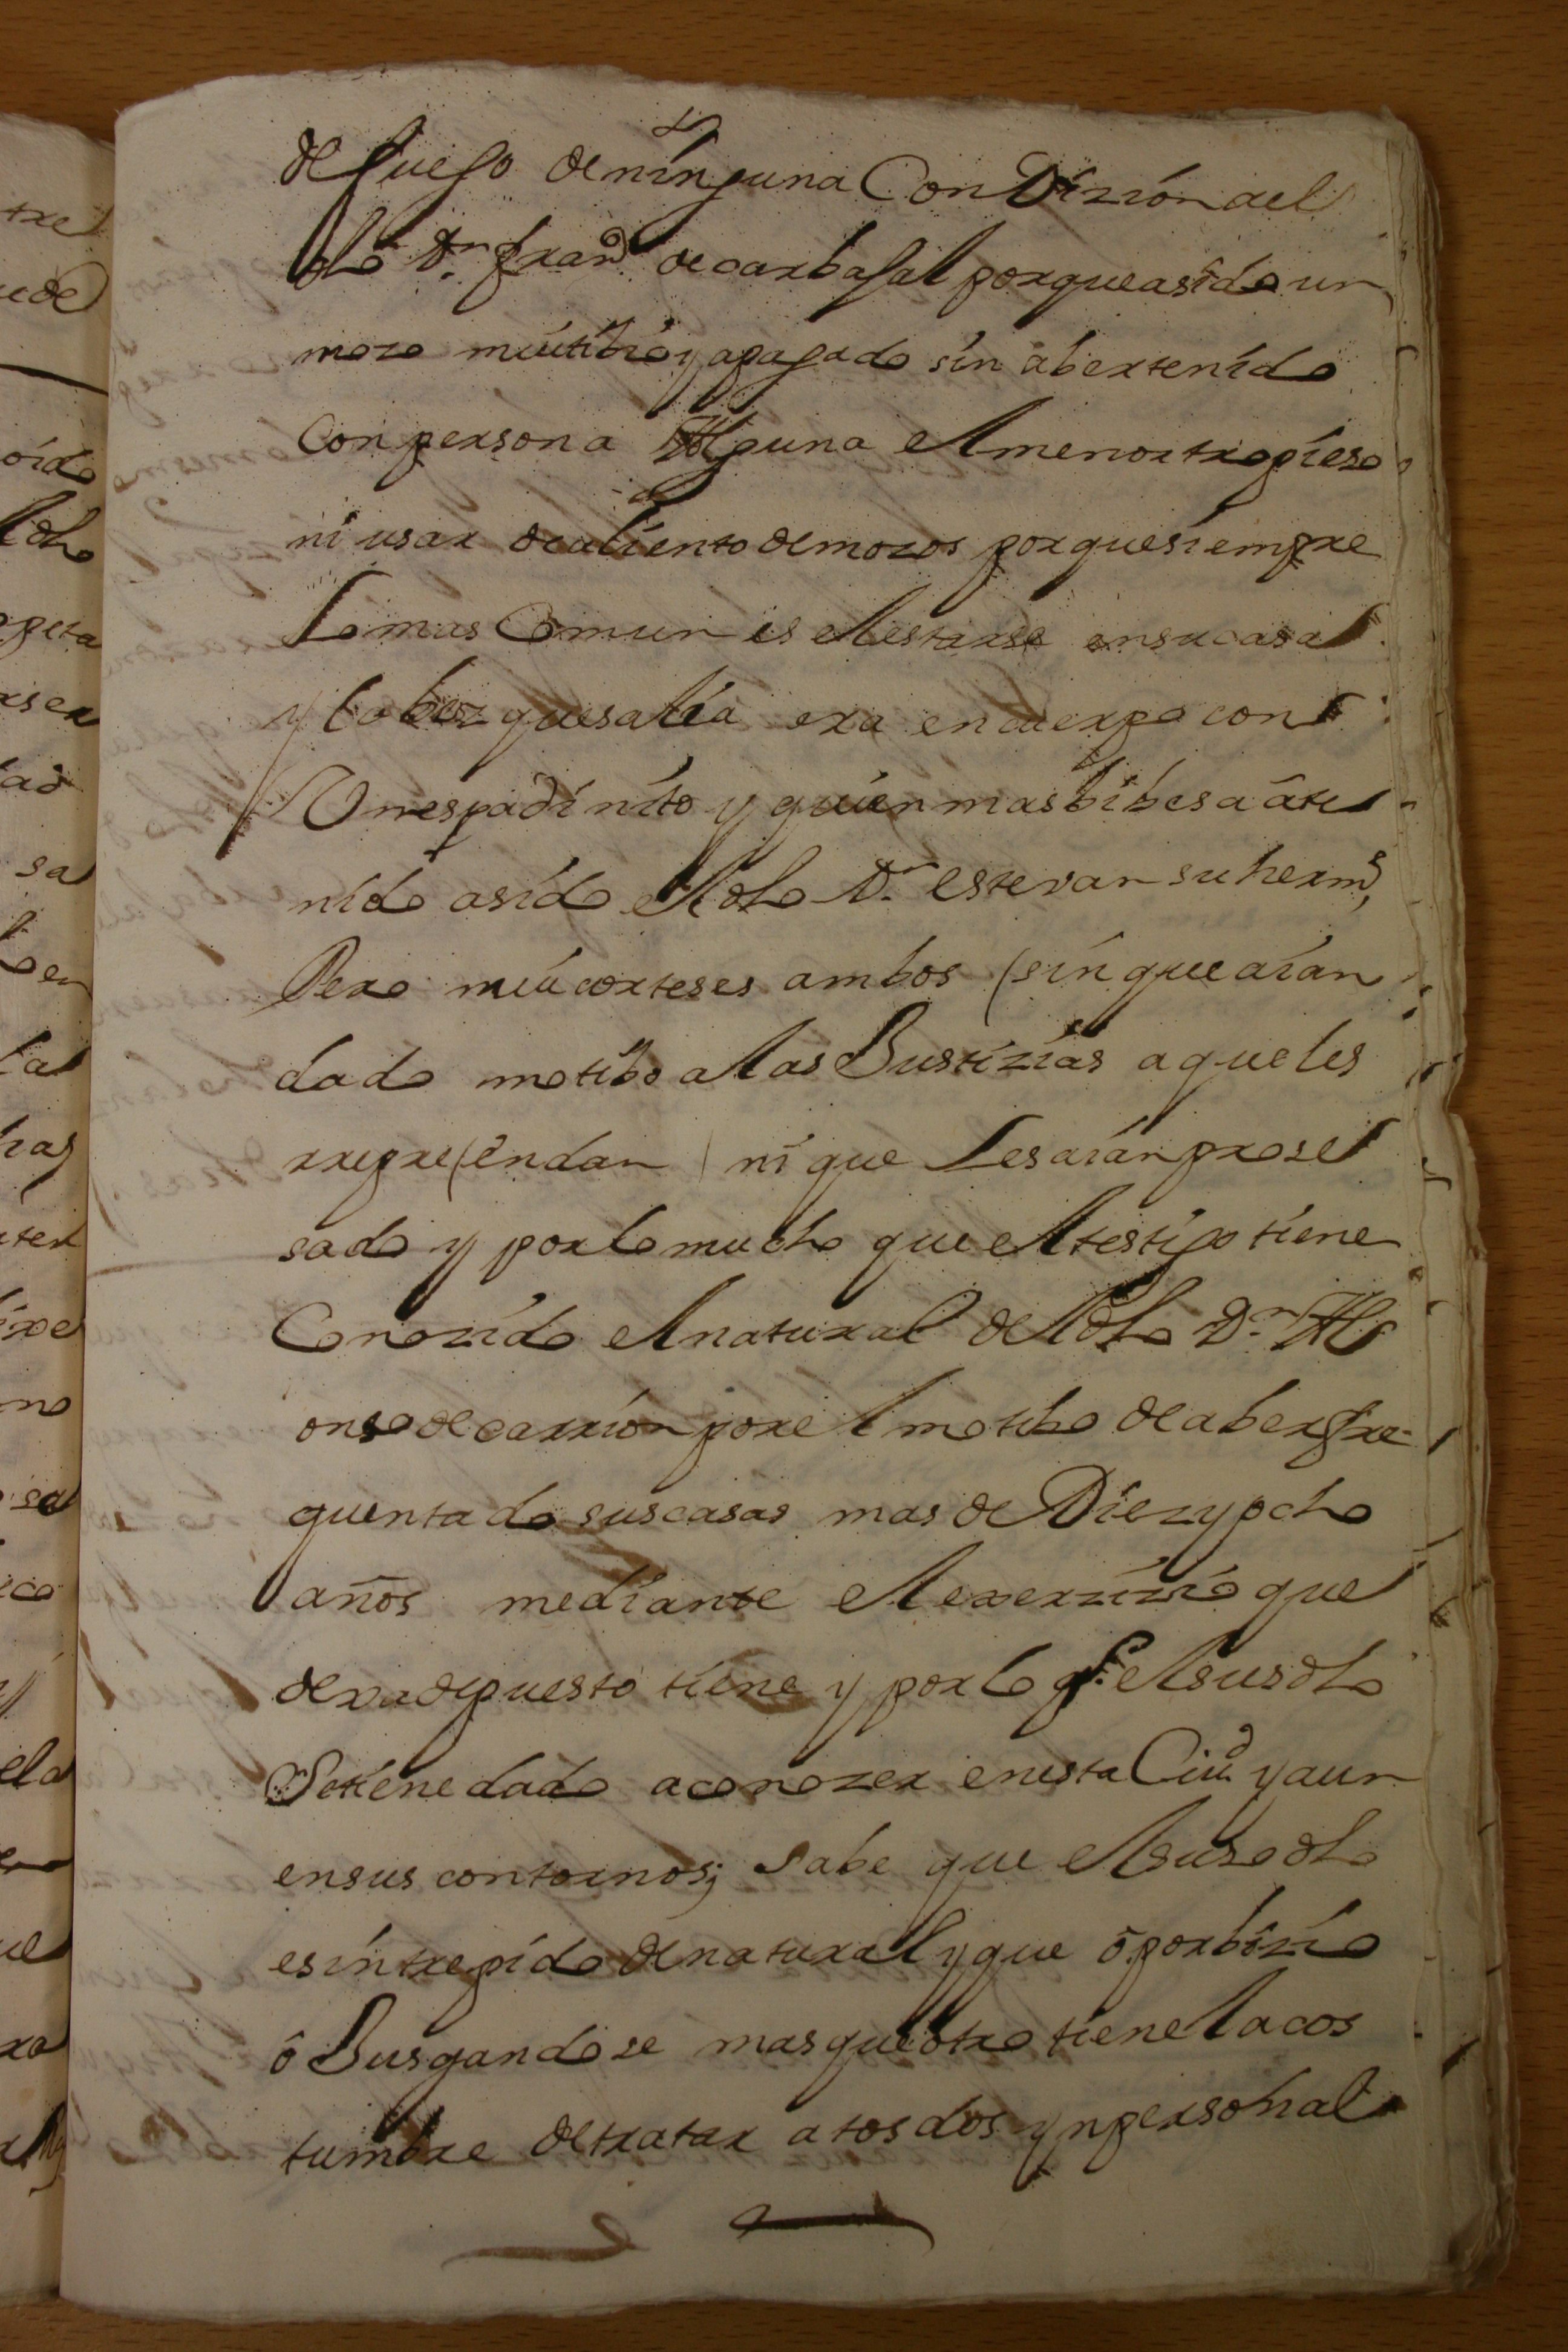 de Juego de ninguna Condizion ael
dho Dn. franco de carbajal porque asido un
mozo mui tibio y apagado sin aber tenido
Con persona Alguna el menor tropieso
ni usar de aliento de mozos porque siempre
Lo mas Comun es el estarse en su casa
y la bez que salia era en cuerpo con
Un espadinito y quien mas bibesa a te
nido asido el dho Dn. estevan su hermo,
Pero mui corteses ambos (sin que aian
dado motibo a las Justizias a que les
rreprehendan ni que Les aian prose
sado y por lo mucho que el testigo tiene
Conozido el natural del dho Dn. Al
onso de carrion por el motibo de aber fre-
quentado sus casas mas de Diez y ocho
años mediante el exerzizio que
dexa depuesto tiene y por lo q.e el susdho
Se tiene dado a conozer en esta Ciud. y aun
en sus contornos; Sabe que el suso dho
es intrepido de natural y que o por bizio
o Jusgandose mas que otro tiene la cos
tumbre de tratar a tos dos ynpersonal